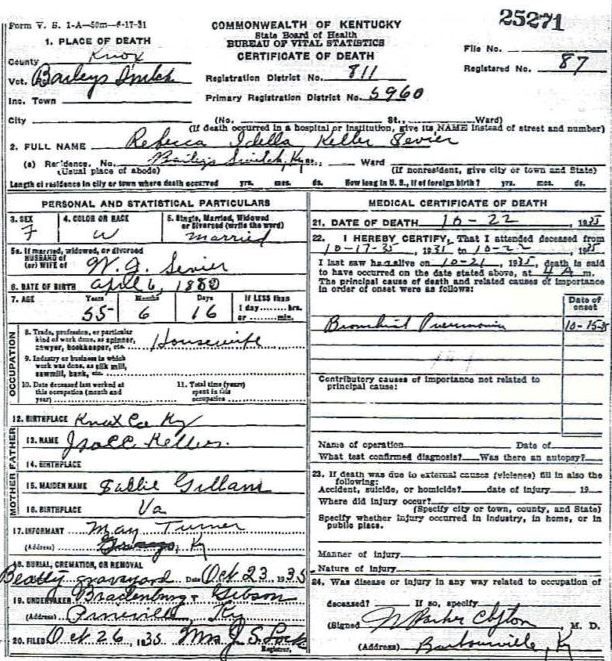 Form V. S. 1-A—50m—6-17-31
25271
COMMONWEALTH OF KENTUCKY
State Board of Health
BUREAU OF VITAL STATISTICS
CERTIFICATE OF DEATH
1. PLACE OF DEATH
County Knox
Vot. Baileys Switch
Inc. Town
File No.
Registered No. 87
Registration District No. 811
Primary Registration District No. 5960
City (No. St., Ward)
(If death occurred in a hospital or institution, give its NAME instead of street and number)
2. FULL NAME Rebecca Idella Keller Sevier
(a) Residence. No. Baileys Switch, Ky St., Ward
(Usual place of abode) (If nonresident, give city or town and State)
Length of residence in city or town where death occurred yrs. mos. ds. How long in U. S., if of foreign birth? yrs. mos. ds.
PERSONAL AND STATISTICAL PARTICULARS
3. SEX F
4. COLOR OR RACE W
5. Single, Married, Widowed or Divorced (write the word) Married
5a. If married, widowed, or divorced
HUSBAND of
(or) WIFE of W. G. Sevier
6. DATE OF BIRTH April 6, 1880
7. AGE Years 55 Months 6 Days 16 If LESS than
1 day hrs.
or min.
OCCUPATION
8. Trade, profession, or particular
kind of work done, as spinner,
sawyer, bookkeeper, etc. Housewife
9. Industry or business in which
work was done, as silk mill,
sawmill, bank, etc.
10. Date deceased last worked at
this occupation (month and
year)
11. Total time (years)
spent in this
occupation
12. BIRTHPLACE Knox Co Ky
FATHER
13. NAME Keller
14. BIRTHPLACE
MOTHER
15. MAIDEN NAME Sallie
16. BIRTHPLACE Va
17. INFORMANT May Turner
(Address) Ky
18. BURIAL, CREMATION, OR REMOVAL
Beatty graveyard Date Oct 23 1935
19. UNDERTAKER Bradenburg & Gibson
(Address) Pineville, Ky
20. FILED Oct 26, 1935 Mrs J. S. Lock
Registrar.
MEDICAL CERTIFICATE OF DEATH
21. DATE OF DEATH 10-22, 1935
22. I HEREBY CERTIFY, That I attended deceased from
10-17-35, 1935 to 10-22, 1935
I last saw her alive on 10-21, 1935, death is said
to have occurred on the date stated above, at 4 A m.
The principal cause of death and related causes of importance
in order of onset were as follows:
Date of
onset
Bronchial Pneumonia 10-15-35
Contributory causes of importance not related to
principal cause:
Name of operation Date of
What test confirmed diagnosis? Was there an autopsy?
23. If death was due to external causes (violence) fill in also the
following:
Accident, suicide, or homicide? date of injury 19
Where did injury occur?
(Specify city or town, county, and State)
Specify whether injury occurred in industry, in home, or in
public place.
Manner of injury
Nature of injury
24. Was disease or injury in any way related to occupation of
deceased? If so, specify
(Signed) Parker Clifton, M. D.
(Address) Barbourville, Ky